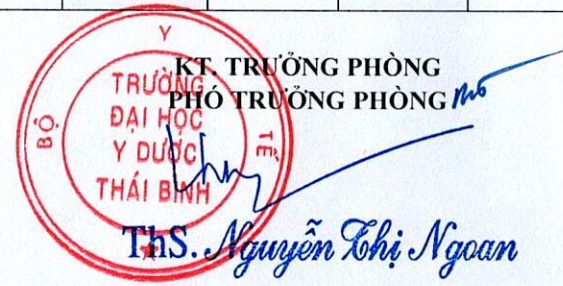 KT. TRƯỞNG PHÒNG
PHÓ TRƯỞNG PHÒNG
BỘ Y TẾ
TRƯỜNG
ĐẠI HỌC
Y DƯỢC
THÁI BÌNH
ThS. Nguyễn Thị Ngoan